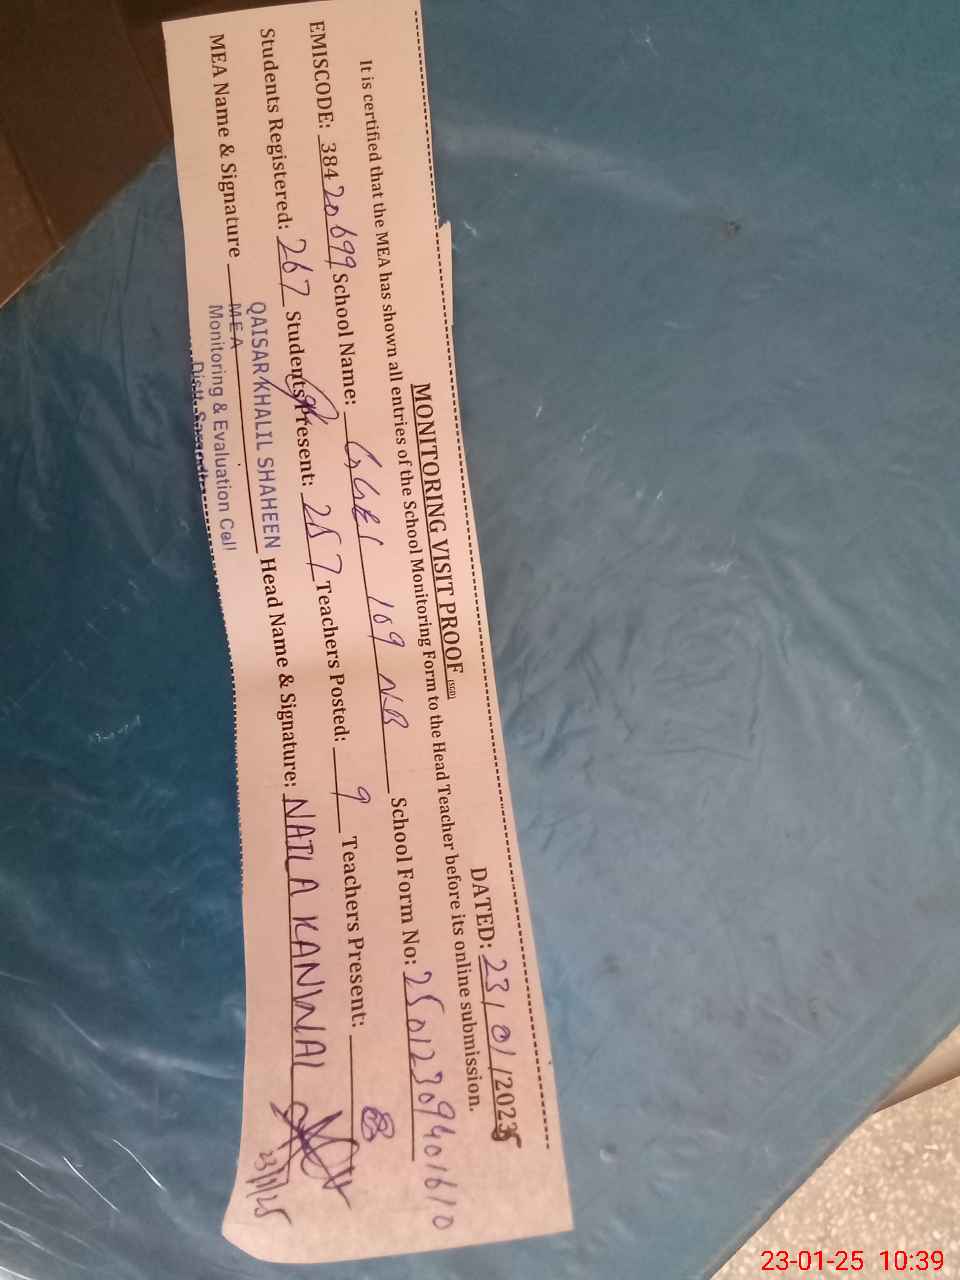 MONITORING VISIT PROOF (SGD)
DATED: 23/01/2025
It is certified that the MEA has shown all entries of the School Monitoring Form to the Head Teacher before its online submission.
EMISCODE: 38420699 School Name: GGES 109 NB School Form No: 25012309401610
Students Registered: 267 Students Present: 257 Teachers Posted: 9 Teachers Present: 8
MEA Name & Signature Head Name & Signature: NAILA KANWAL
QAISAR KHALIL SHAHEEN
MEA
Monitoring & Evaluation Cell
23/1/25
23-01-25 10:39